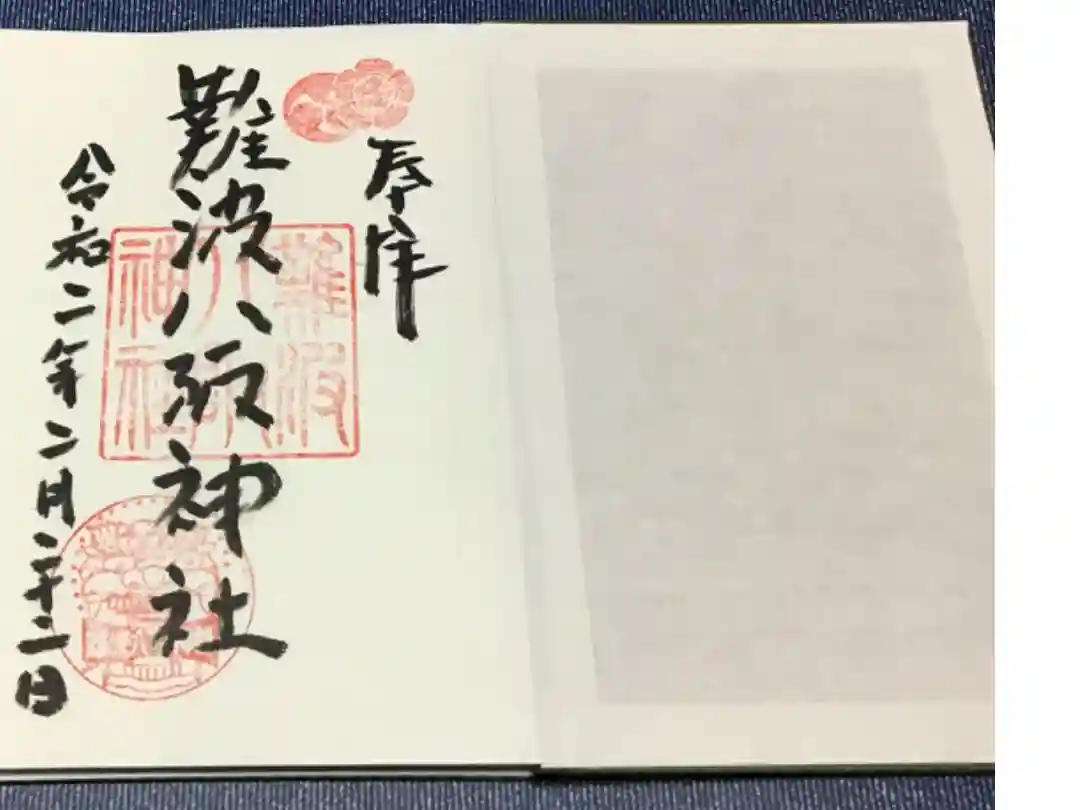 奉拝
難波八阪神社
令和二年二月二十二日
難波
八阪
神社